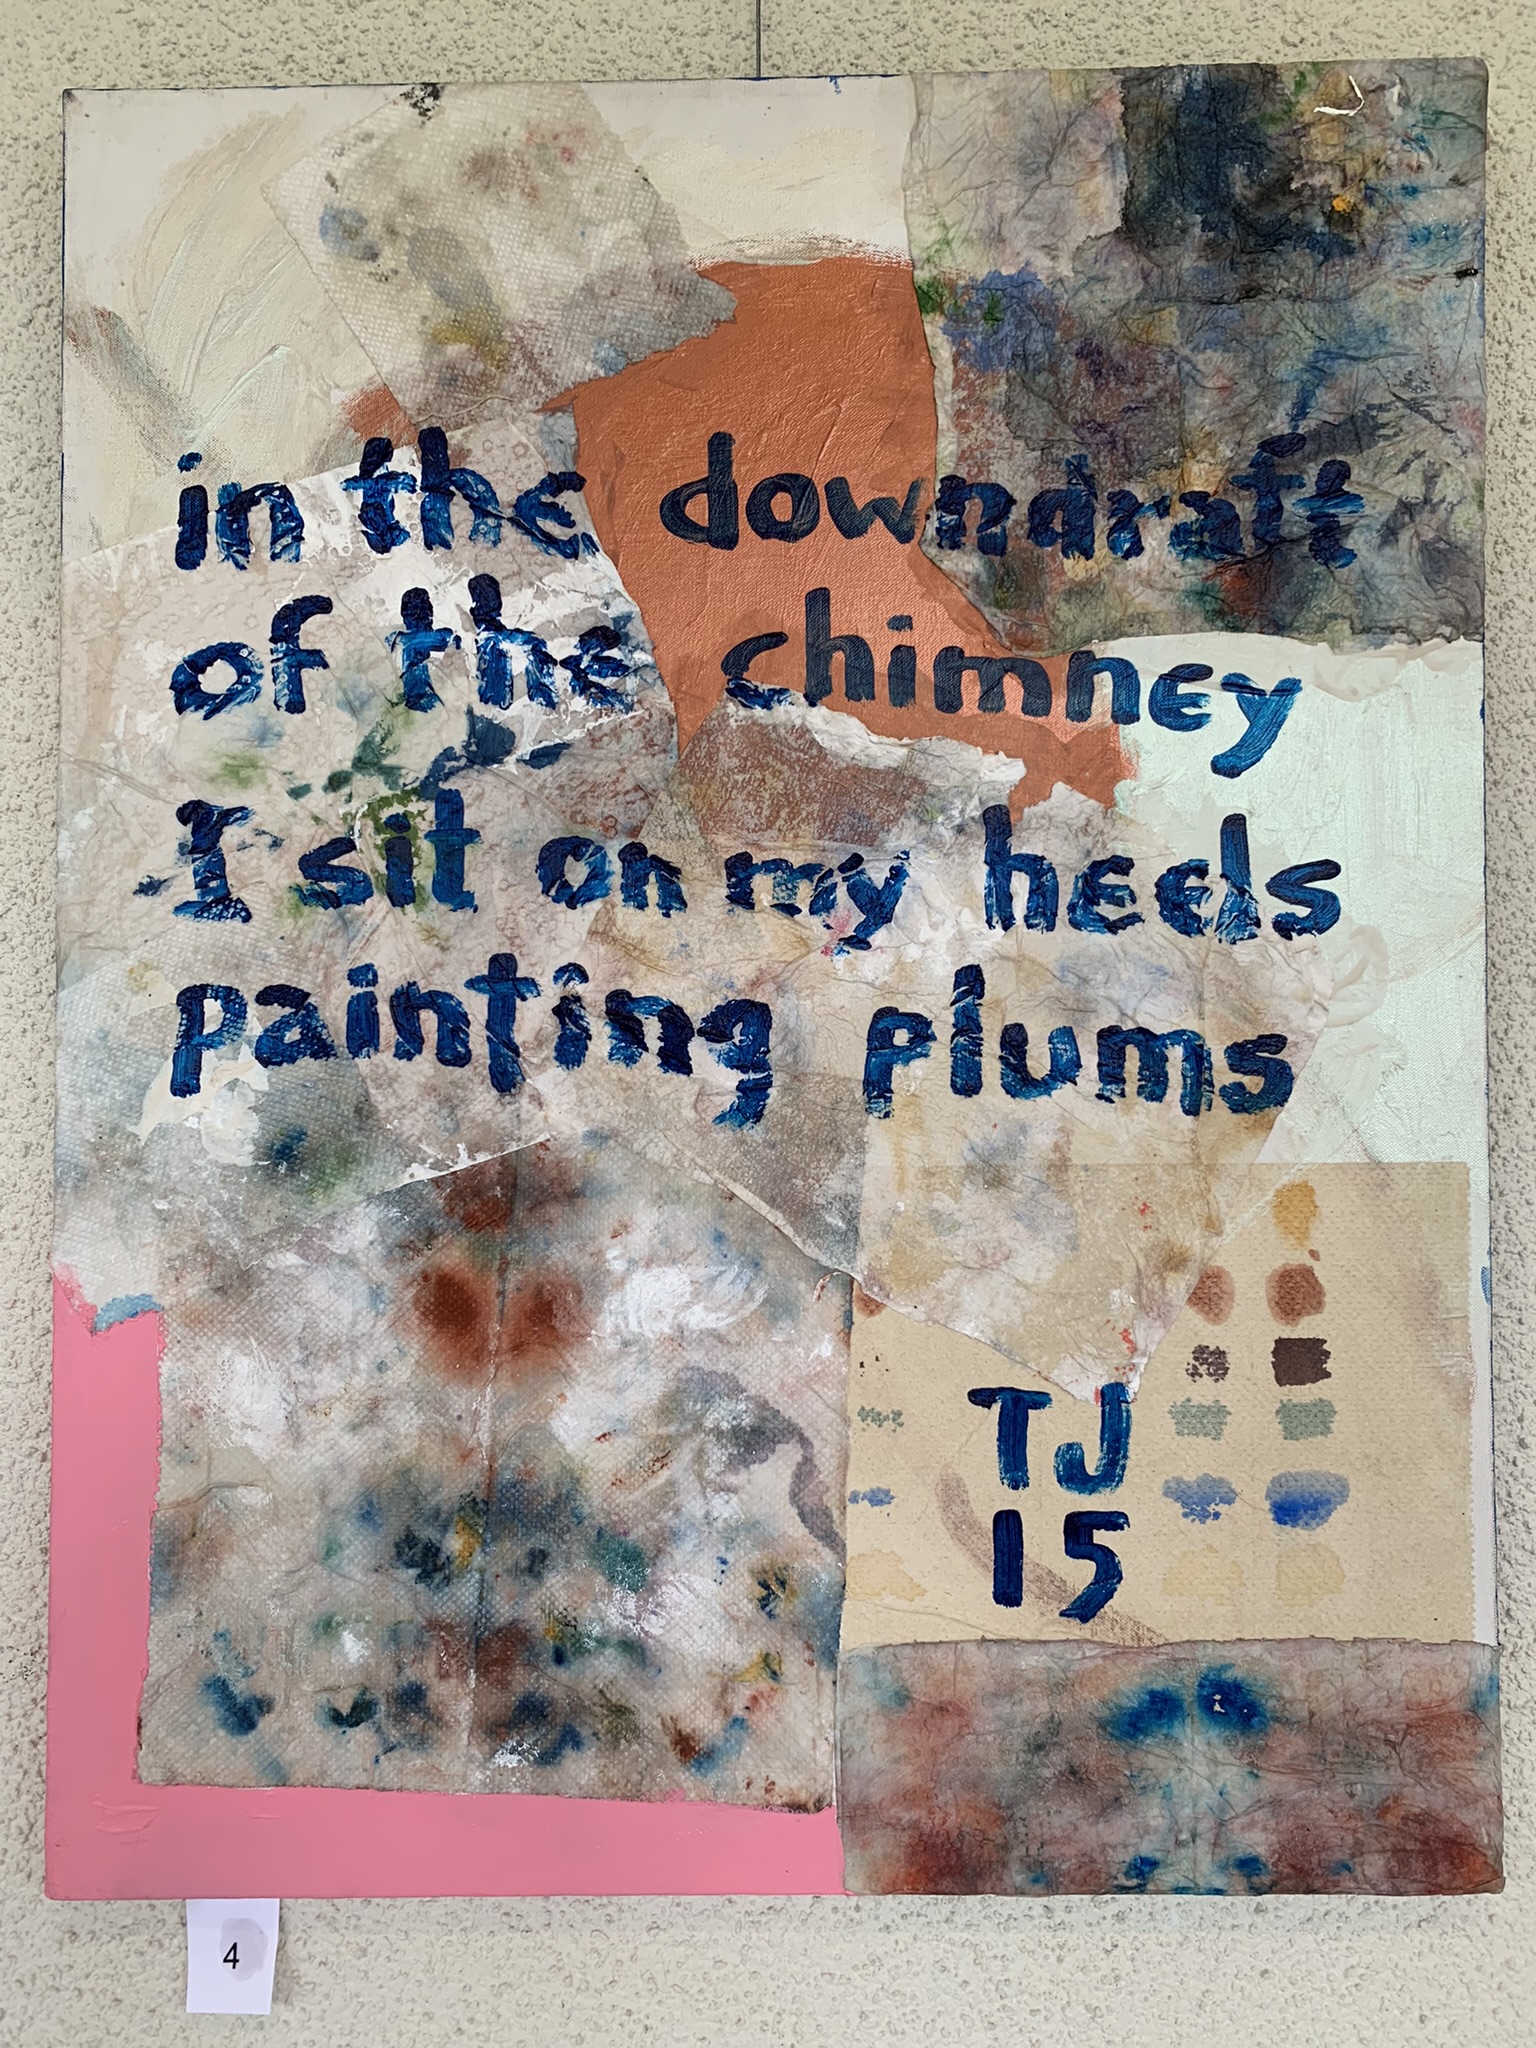 in the downdraft
of the chimney
I sit on my heels
painting plums
TJ
15
4